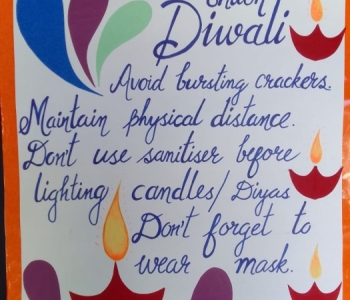 Diwali
Avoid bursting crackers.
Maintain physical distance.
Don't use sanitiser before
lighting candles/Diyas
Don't forget to
wear mask.